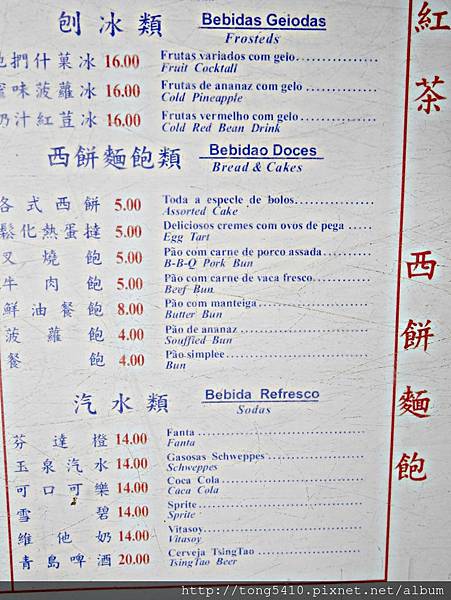 刨冰類 Bebidas Geiodas
Frosteds
捫什菓冰 16.00 Frutas variados com gelo
Fruit Cocktall
味菠蘿冰 16.00 Frutas de ananaz com gelo
Cold Pineapple
奶汁紅荳冰 16.00 Frutas vermelho com gelo
Cold Red Bean Drink
西餅麵飽類 Bebidao Doces
Bread & Cakes
各式西餅 5.00 Toda a especle de bolos
Assorted Cake
鬆化熱蛋撻 5.00 Deliciosos cremes com ovos de pega
Egg Tart
叉燒飽 5.00 Pão com carne de porco assada
B-B-Q Pork Bun
牛肉飽 5.00 Pão com carne de vaca fresco
Beef Bun
鮮油餐飽 8.00 Pão com manteiga
Butter Bun
菠蘿飽 4.00 Pão de ananaz
Souffied Bun
餐飽 4.00 Pão simplee
Bun
汽水類 Bebida Refresco
Sodas
芬達橙 14.00 Fanta
Fanta
玉泉汽水 14.00 Gasosas Schweppes
Schweppes
可口可樂 14.00 Coca Cola
Caca Cola
雪碧 14.00 Sprite
Sprite
維他奶 14.00 Vitasoy
Vitasoy
青島啤酒 20.00 Cerveja TsingTao
TsingTao Beer
紅茶
西餅麵飽
http://tong5410.pixnet.net/album